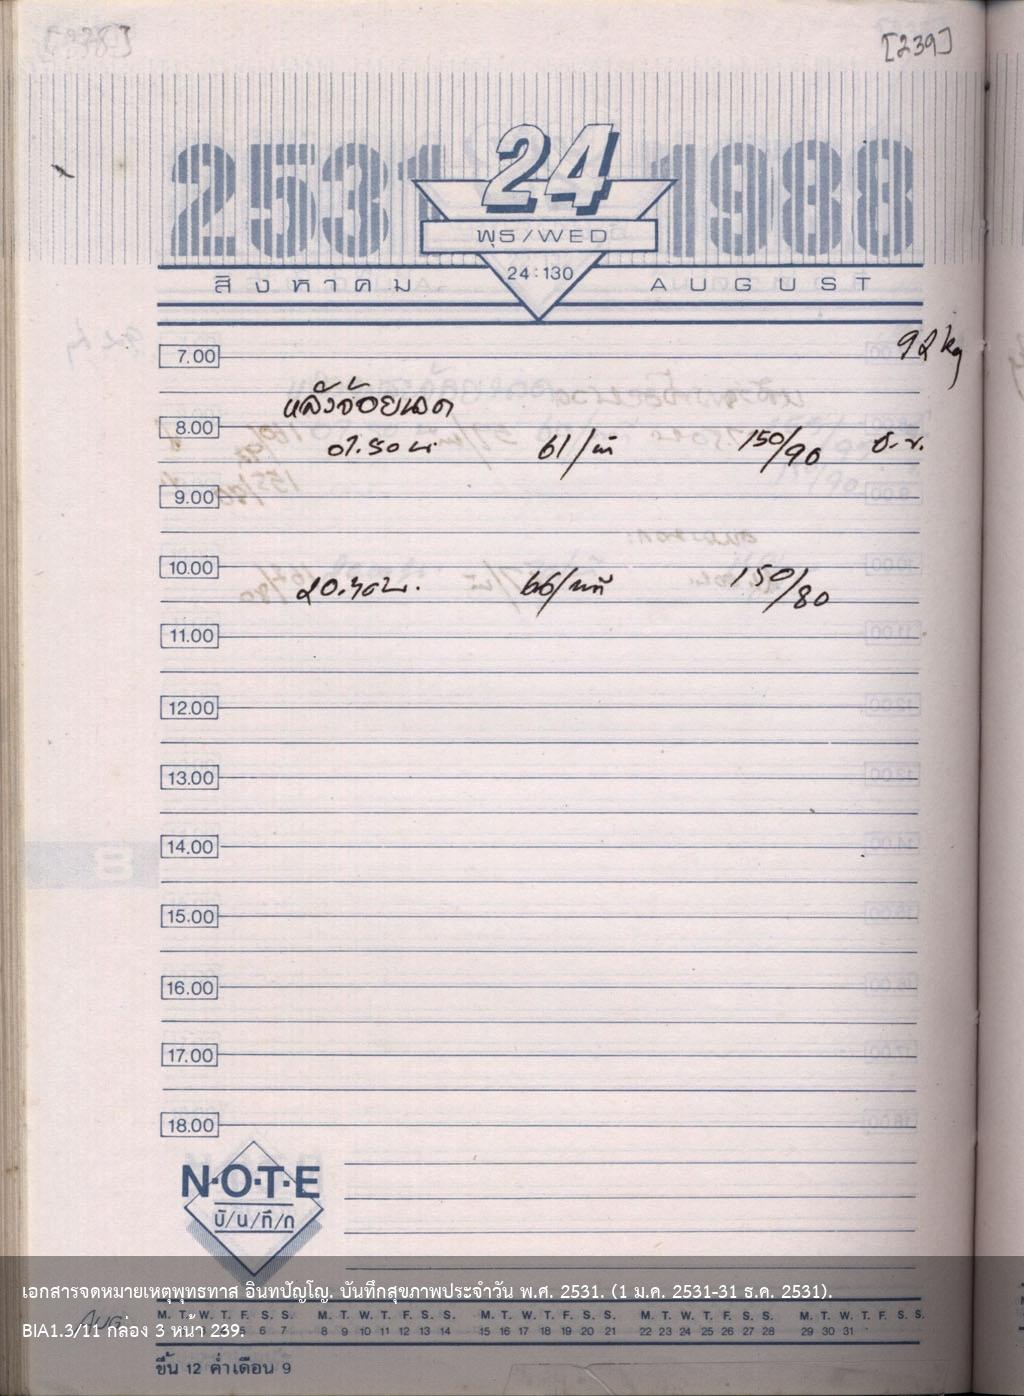 [239]
2531 24 1988
พุธ/WED
24:130
สิงหาคม AUGUST
92 kg
7.00
8.00
61/ 150/90
9.00
10.00
66/นาที 150/80
11.00
12.00
13.00
14.00
8
15.00
16.00
17.00
18.00
N·O·T·E
บั/น/ทึ/ก
เอกสารจดหมายเหตุพุทธทาส อินทปัญโญ. บันทึกสุขภาพประจำวัน พ.ศ. 2531. (1 ม.ค. 2531-31 ธ.ค. 2531).
M. T. W. T. F. S. S. M. T. W. T. F. S. S. M. T. W. T. F. S. S. M. T. W. T. F. S. S. M. T. W. T. F. S. S.
BIA1.3/11 กล่อง 3 หน้า 239.
5 6 7 8 9 10 11 12 13 14 15 16 17 18 19 20 21 22 23 24 25 26 27 28 29 30 31
ขึ้น 12 ค่ำ เดือน 9